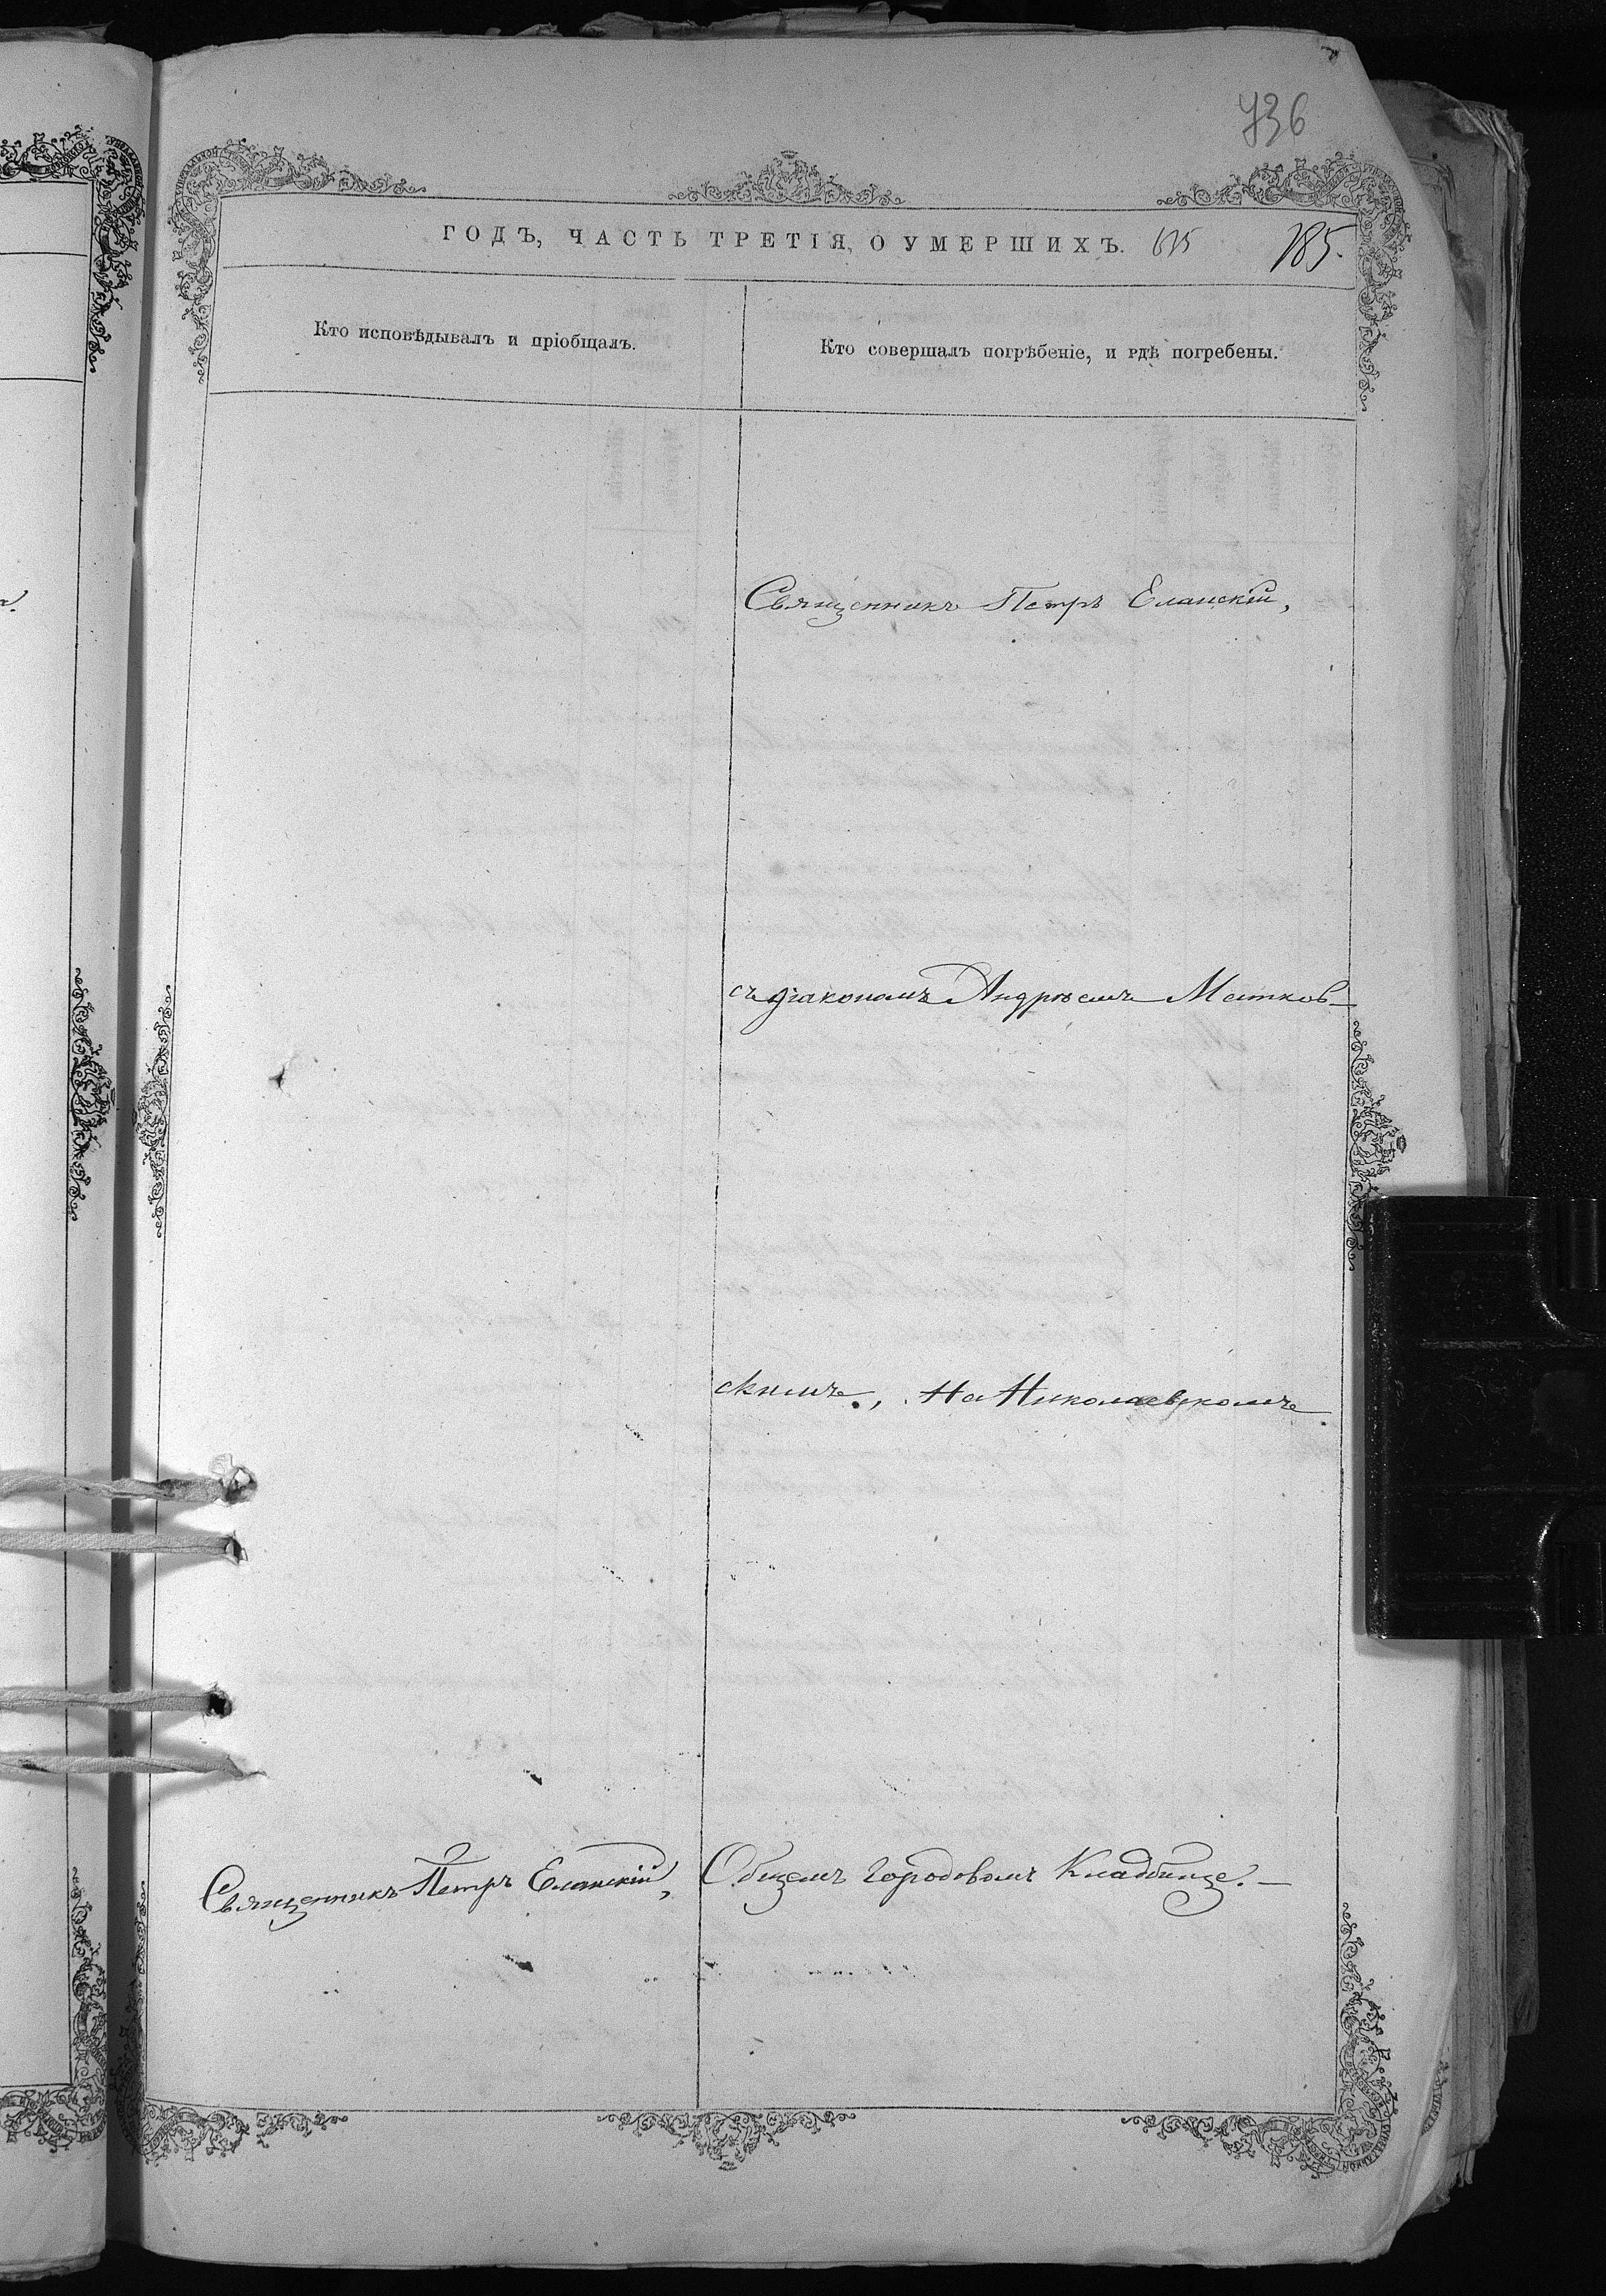 736
ГОДЪ, ЧАСТЬ ТРЕТІЯ, О УМЕРШИХЪ. 615 185.
Кто исповѣдывалъ и пріобщалъ.
Кто совершалъ погрѣбеніе, и гдѣ погребены.
Священникъ Петръ Еланскій,
съ діакономъ Андреемъ Матков-
скимъ, На Николаевскомъ
Священникъ Петръ Еланскій,
Общемъ городовомъ Кладбище. —